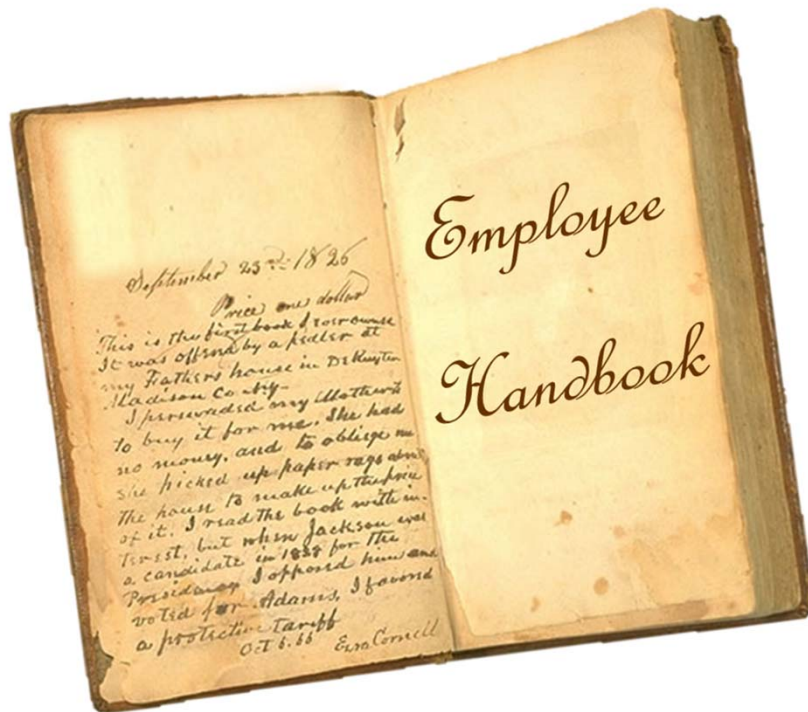 September 23rd 1826
Price one dollar
This is the first book I ever owned
It was offered by a pedler at
my Fathers house in DeRuyter
Madison Co Ny-
I persuaded my Mother
to buy it for me. She had
no money, and to obliege me
she picked up paper rags about
the house to make up the price
of it. I read the book with in-
terest, but when Jackson was
a candidate in 1828 for the
Presidency I opposed him and
voted for Adams, I favored
a protective tariff
Oct 5. 55 Ezra Cornell
Employee
Handbook